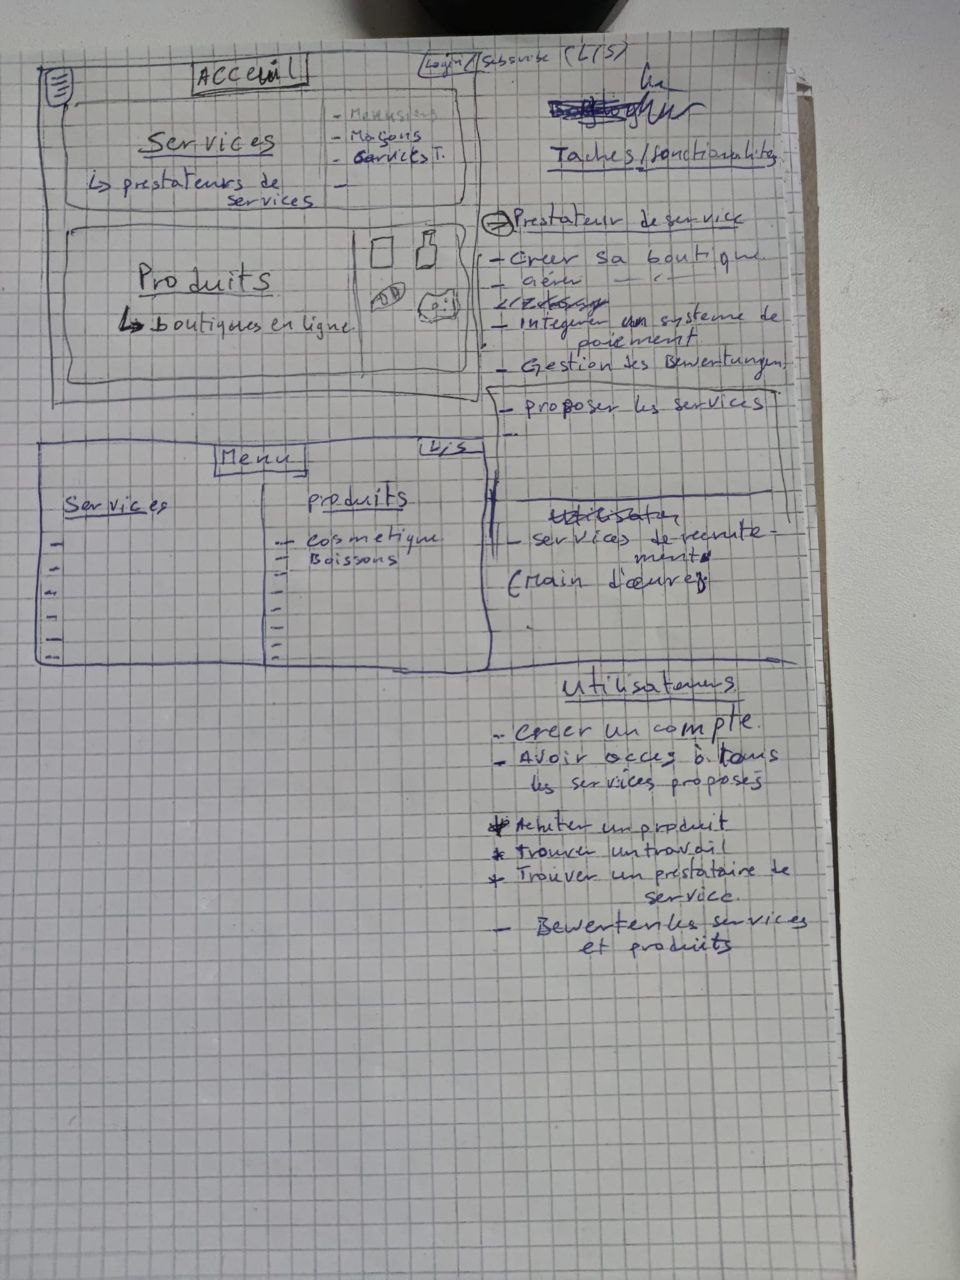 ACCEUIL
Login / Subsribe (L/S)
Services
↳ prestateurs de
services
- Menusiers
- Maçons
- Services T.
-
Produits
↳ boutiques en ligne
Taches/fonctionalités
→ Prestateur de service
- Créer sa boutique
- Gérer — " —
- Integrer un systeme de
paiement
- Gestion des Bewertungen
- proposer les services
-
Menu
L/S
Services
-
-
-
-
-
-
produits
- cosmetique
- Boissons
-
-
-
-
-
Utilisateu
- services de recrute-
ment
(Main d'œuvre)
Utilisateurs
- Créer un compte.
- Avoir acces à tous
les services proposés
* Acheter un produit
* Trouver un travail
* Trouver un prestataire de
service.
- Bewerten les services
et produits